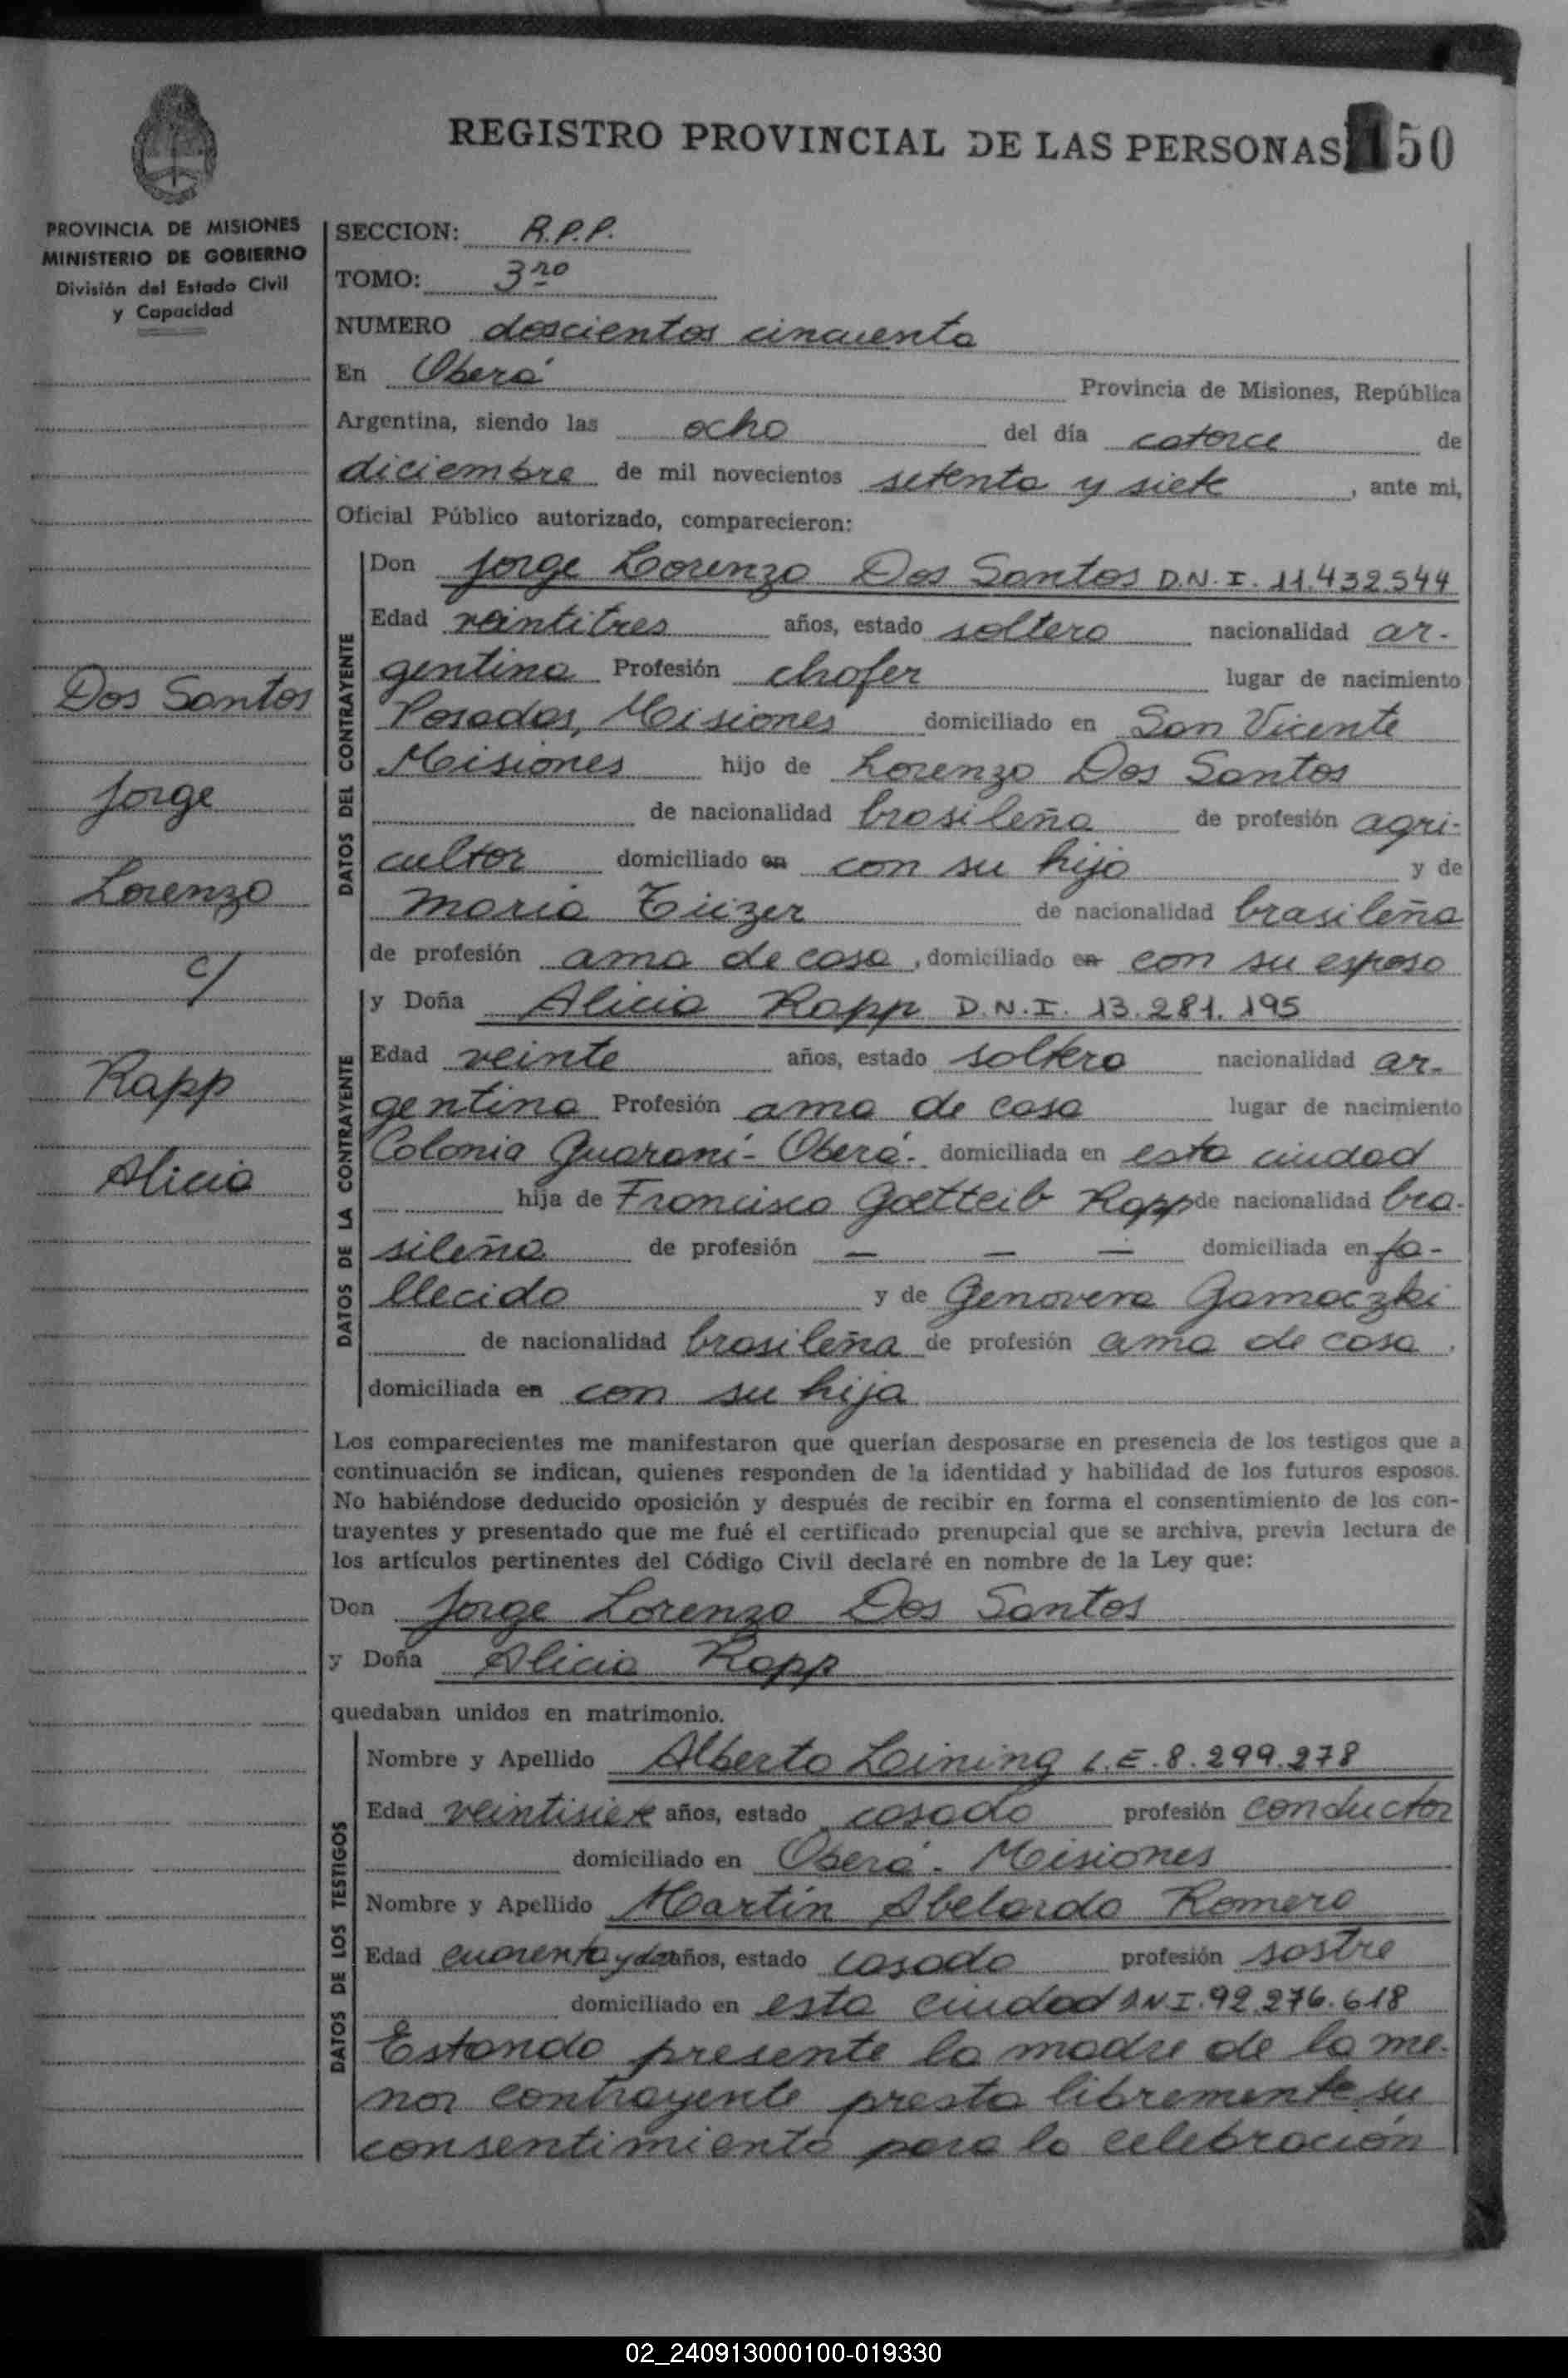 REGISTRO PROVINCIAL DE LAS PERSONAS 150
PROVINCIA DE MISIONES
MINISTERIO DE GOBIERNO
División del Estado Civil
y Capacidad
SECCION: R.P.P.
TOMO: 3ro
NUMERO doscientos cincuenta
En Oberá Provincia de Misiones, República
Argentina, siendo las ocho del día catorce de
diciembre de mil novecientos setenta y siete, ante mi,
Oficial Público autorizado, comparecieron:
DATOS DEL CONTRAYENTE
Don Jorge Lorenzo Dos Santos D.N.I. 11.432.544
Edad veintitres años, estado soltero nacionalidad ar-
gentina Profesión chofer lugar de nacimiento
Posadas, Misiones domiciliado en San Vicente
Misiones hijo de Lorenzo Dos Santos
de nacionalidad brasileña de profesión agri-
cultor domiciliado en con su hijo y de
Maria de nacionalidad brasileña
de profesión ama de casa, domiciliado en con su esposo
Dos Santos
Jorge
Lorenzo
c/
Rapp
Alicia
DATOS DE LA CONTRAYENTE
y Doña Alicia Rapp D.N.I. 13.281.195
Edad veinte años, estado soltera nacionalidad ar-
gentina Profesión ama de casa lugar de nacimiento
Colonia Guaraní- Oberá- domiciliada en esta ciudad
hija de Francisco Goetteib Rapp de nacionalidad bra-
sileña de profesión — — — domiciliada en fa-
llecido y de Genovera Gamaczki
de nacionalidad brasileña de profesión ama de casa,
domiciliada en con su hija
Los comparecientes me manifestaron que querían desposarse en presencia de los testigos que a
continuación se indican, quienes responden de la identidad y habilidad de los futuros esposos.
No habiéndose deducido oposición y después de recibir en forma el consentimiento de los con-
trayentes y presentado que me fué el certificado prenupcial que se archiva, previa lectura de
los artículos pertinentes del Código Civil declaré en nombre de la Ley que:
Don Jorge Lorenzo Dos Santos
y Doña Alicia Rapp
quedaban unidos en matrimonio.
DATOS DE LOS TESTIGOS
Nombre y Apellido Alberto Leining L.E. 8.299.278
Edad veintisiete años, estado casado profesión conductor
domiciliado en Oberá - Misiones
Nombre y Apellido Martín Abelardo Romero
Edad cuarenta y dos años, estado casado profesión sastre
domiciliado en esta ciudad D.N.I. 92.276.618
Estando presente la madre de la me-
nor contrayente presta libremente su
consentimiento para la celebración
02_240913000100-019330